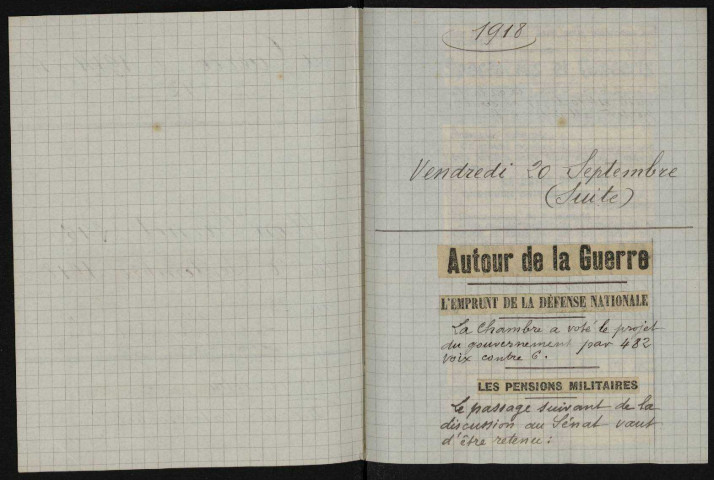 1918
Vendredi 20 Septembre
(Suite)
Autour de la Guerre
L'EMPRUNT DE LA DÉFENSE NATIONALE
La Chambre a voté le projet
du gouvernement par 482
voix contre 6.
LES PENSIONS MILITAIRES
Le passage suivant de la
discussion au Sénat vaut
d'être retenu :